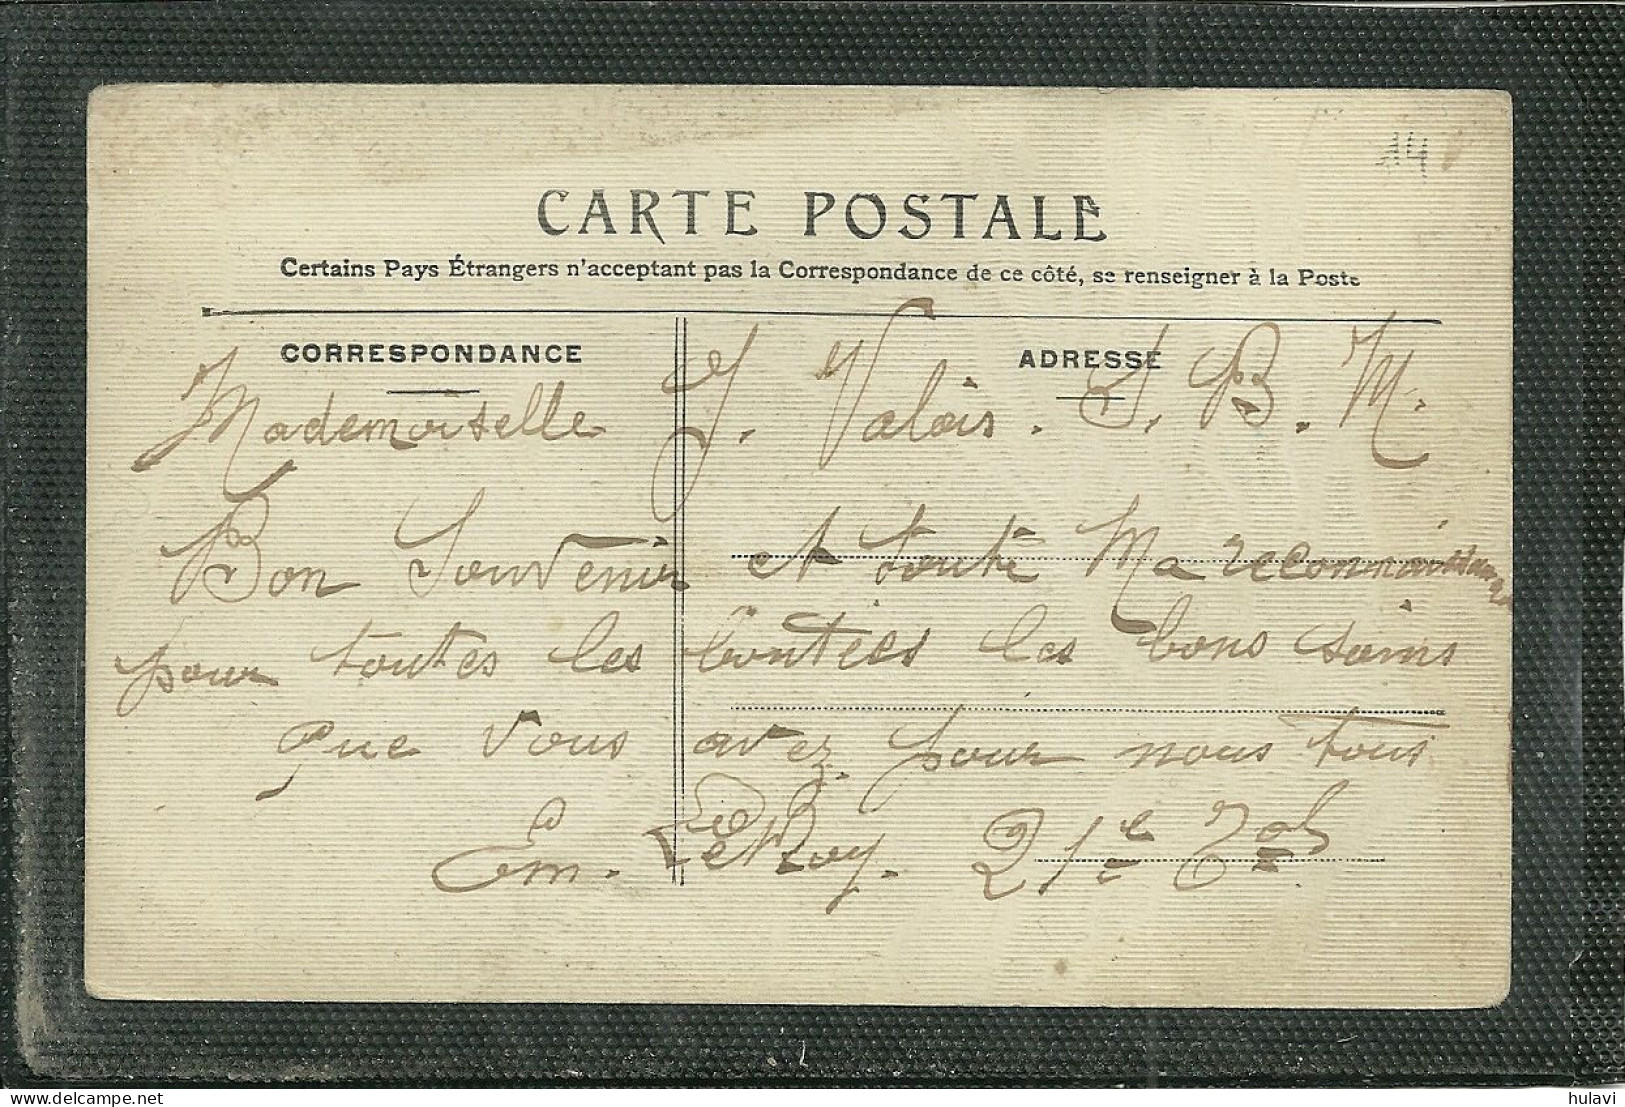 14
CARTE POSTALE
Certains Pays Étrangers n'acceptant pas la Correspondance de ce côté, se renseigner à la Poste
CORRESPONDANCE
ADRESSE
Mademoiselle J. Valois. S. B. M.
Bon Souvenir et toute Ma reconnaissance
pour toutes les bontées les bons soins
que vous avez pour nous tous
Em. Le Roy. 21e
hulavi